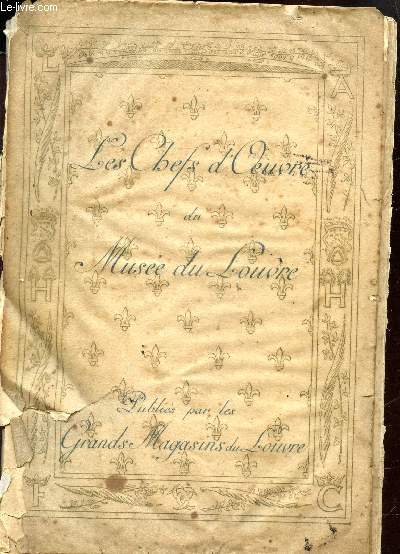 Le-livre.com
L A
Les Chefs d'Oeuvre
du
Musée du Louvre
H H
Publiées par les
Grands Magasins du Louvre
F C